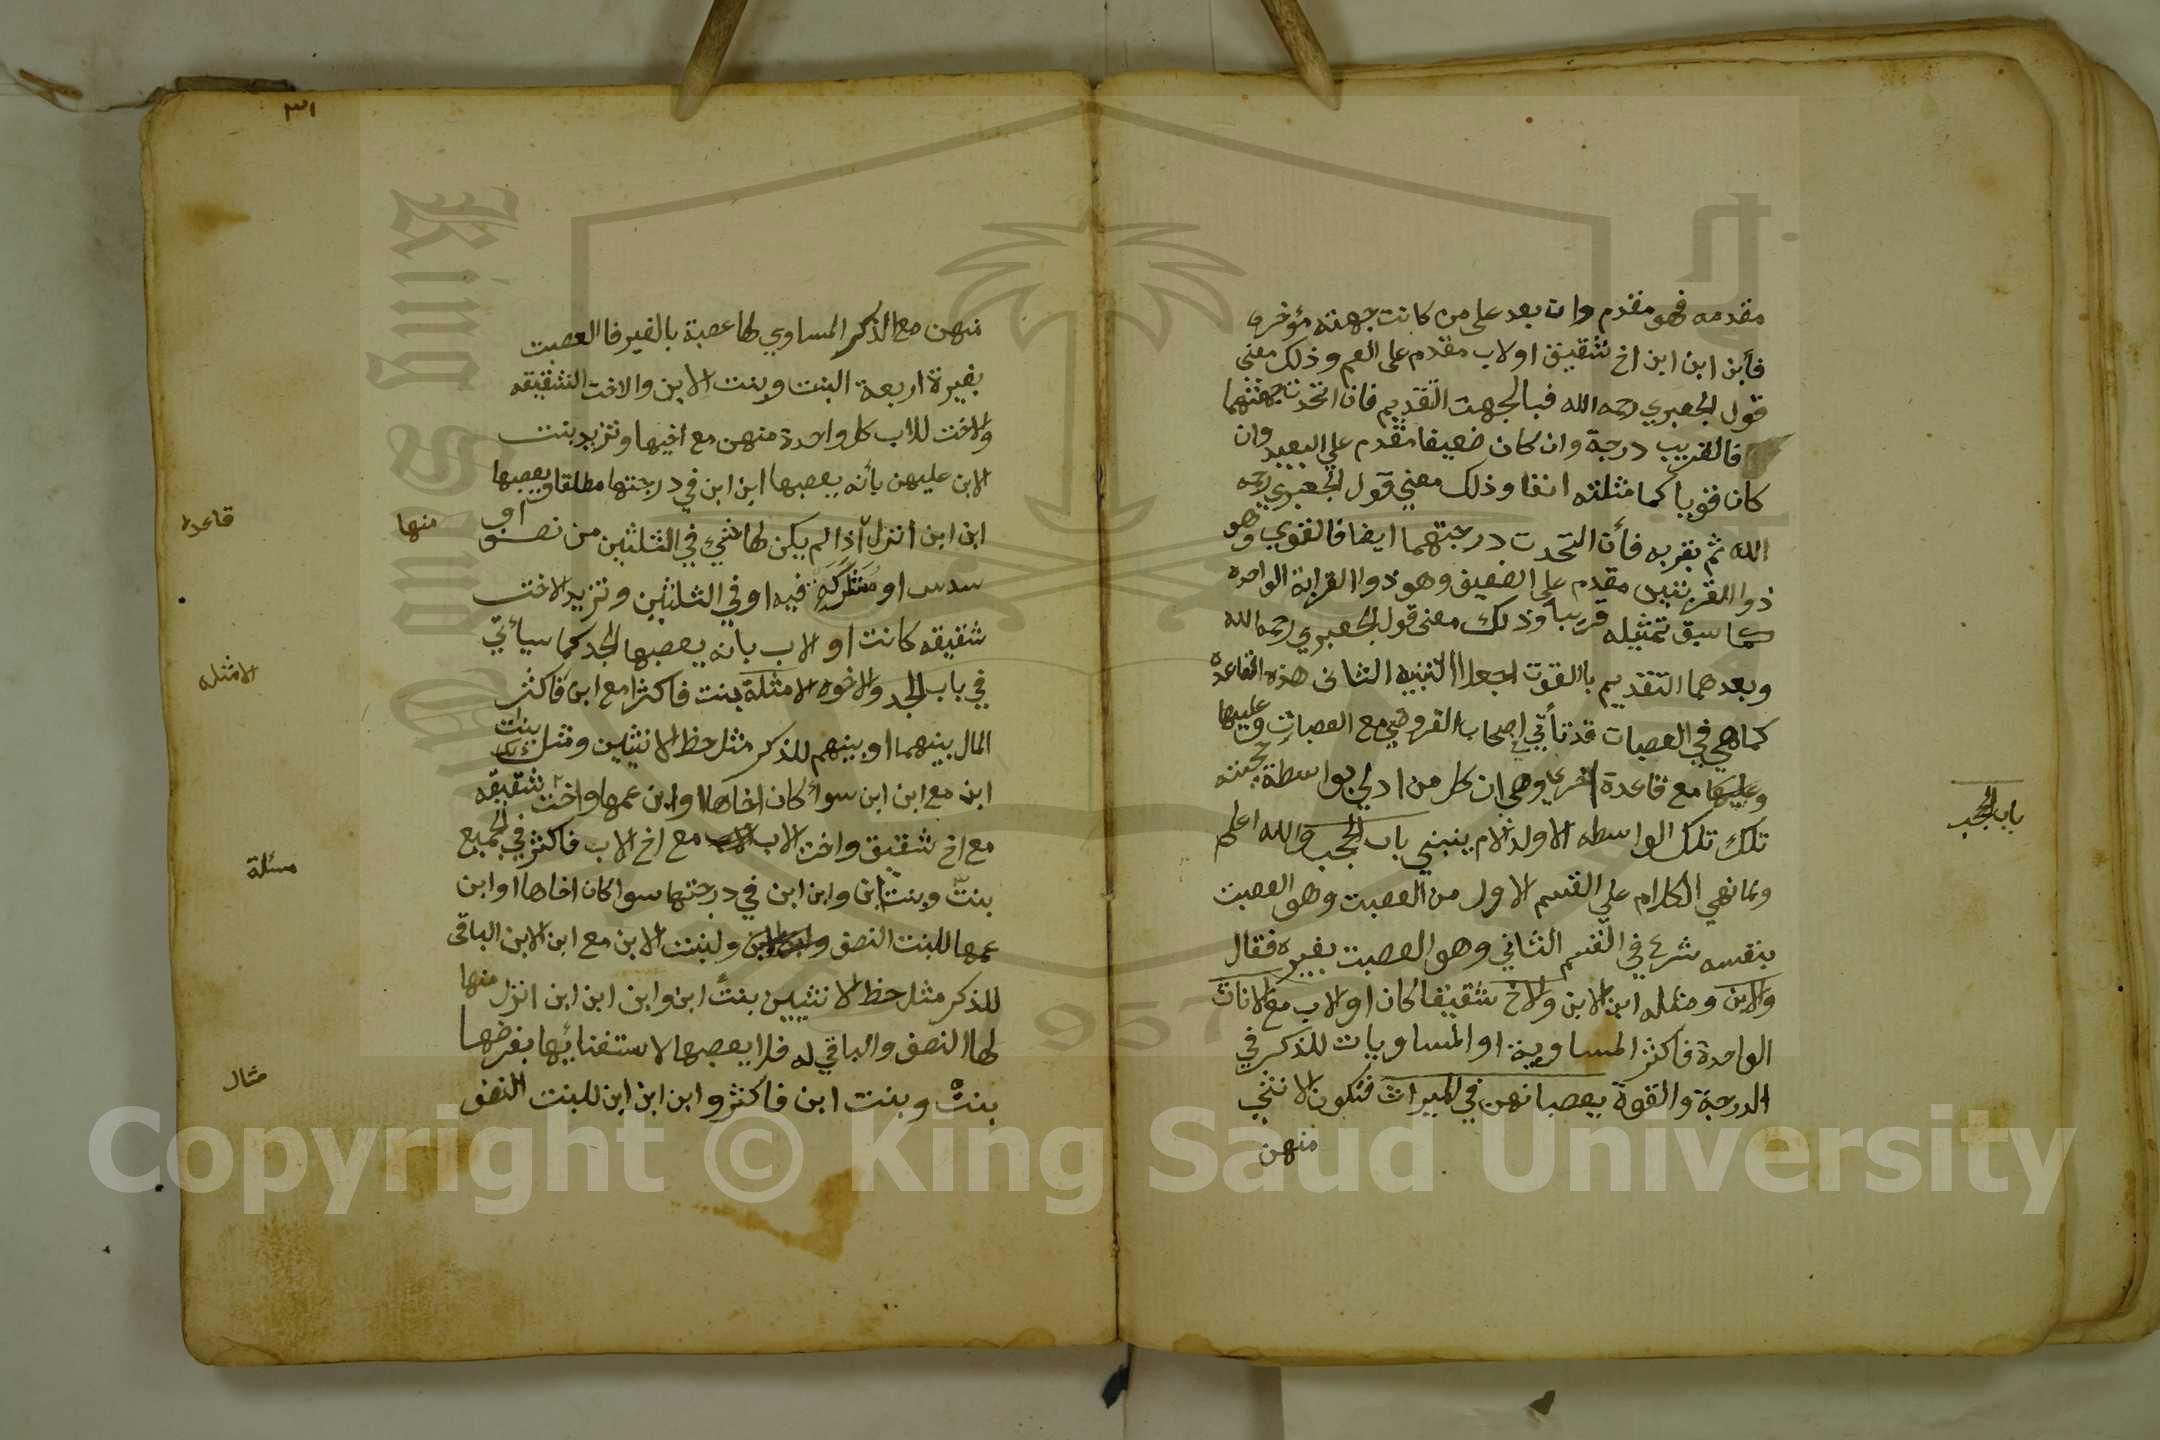 مقدمه فهو مقدم وان بعد على من كانت جهته مؤخره
فأبن ابن ابن اخ شقيق او لاب مقدم على العم وذلك معنى
قول الجعبري رحمه الله فبالجهت التقديم فان اتحدت جهتهما
فالقريب درجة وان كان ضعيفا مقدم علي البعيد وان
كان قويا كما مثلته انفا وذلك معني قول الجعبري رحمه
الله ثم بقربه فأن اتحدت درجتهما ايضا فالقوي وهو
ذو القرابتين مقدم على الضعيف وهو ذوا القرابة الواحده
كما سبق تمثيله قريبا وذلك معنى قول الجعبري رحمه الله
وبعدهما التقديم بالقوت اجعلا التنبيه الثانى هذه القاعده
كما هي في العصبات قد تأتي في اصحاب الفروض مع العصبات وعليها
وعليها مع قاعدة اخرى وهي ان كل من ادلي بواسطة حجبته
تلك تلك الواسطه الا ولد الام ينبني باب الحجب والله اعلم
ولما نهي الكلام علي القسم الاول من العصبت وهو العصبت
بنفسه شرع في القسم الثاني وهو العصبت بغيره فقال
والابن ومثله ابن الابن والاخ شقيقا كان او لاب مع الاناث
الواحدة فاكثر المساوية او المساويات للذكر في
الدرجة والقوة يعصبانهن في الميراث فتكون الانثي
منهن
باب الحجب
٣١
منهن مع الذكر المساوي لها عصبة بالغير فا العصبت
بغيرة اربعة البنت وبنت الابن والاخت الشقيقه
والاخت للاب كل واحدة منهن مع اخيها وتزيد بنت
الابن عليهن بأنه يعصبها ابن ابن في درجتها مطلقا ويعصبها
ابن ابن انزل اذا لم يكن لها شيء في الثلثين من نصف او
سدس او مشتركه فيه او في الثلثين وتزيد الاخت
شقيقه كانت او لاب بانه يعصبها الجد كما سيأتي
في باب الجد والاخوه الامثلة بنت فاكثر مع ابن فاكثر
المال بينهما او بينهم للذكر مثل حظ الانثيين ومثل بنت
ابن مع ابن ابن سواء كان اخاها او ابن عمها واخت شقيقه
مع اخ شقيق واخت لاب مع اخ لاب فاكثر في الجميع
بنت وبنت ابن وابن ابن في درجتها سوا كان اخاها او ابن
عمها للبنت النصف ولبنت الابن مع ابن الابن الباقي
للذكر مثل حظ الانثيين بنت ابن وابن ابن ابن انزل منها
لها النصف والباقي له فلا يعصبها لاستغنائها بفرضها
بنت وبنت ابن فاكثر وابن ابن ابن للبنت النصف
قاعده
منها
الامثله
مسئلة
مثال
King Saud University
1957
Copyright © King Saud University